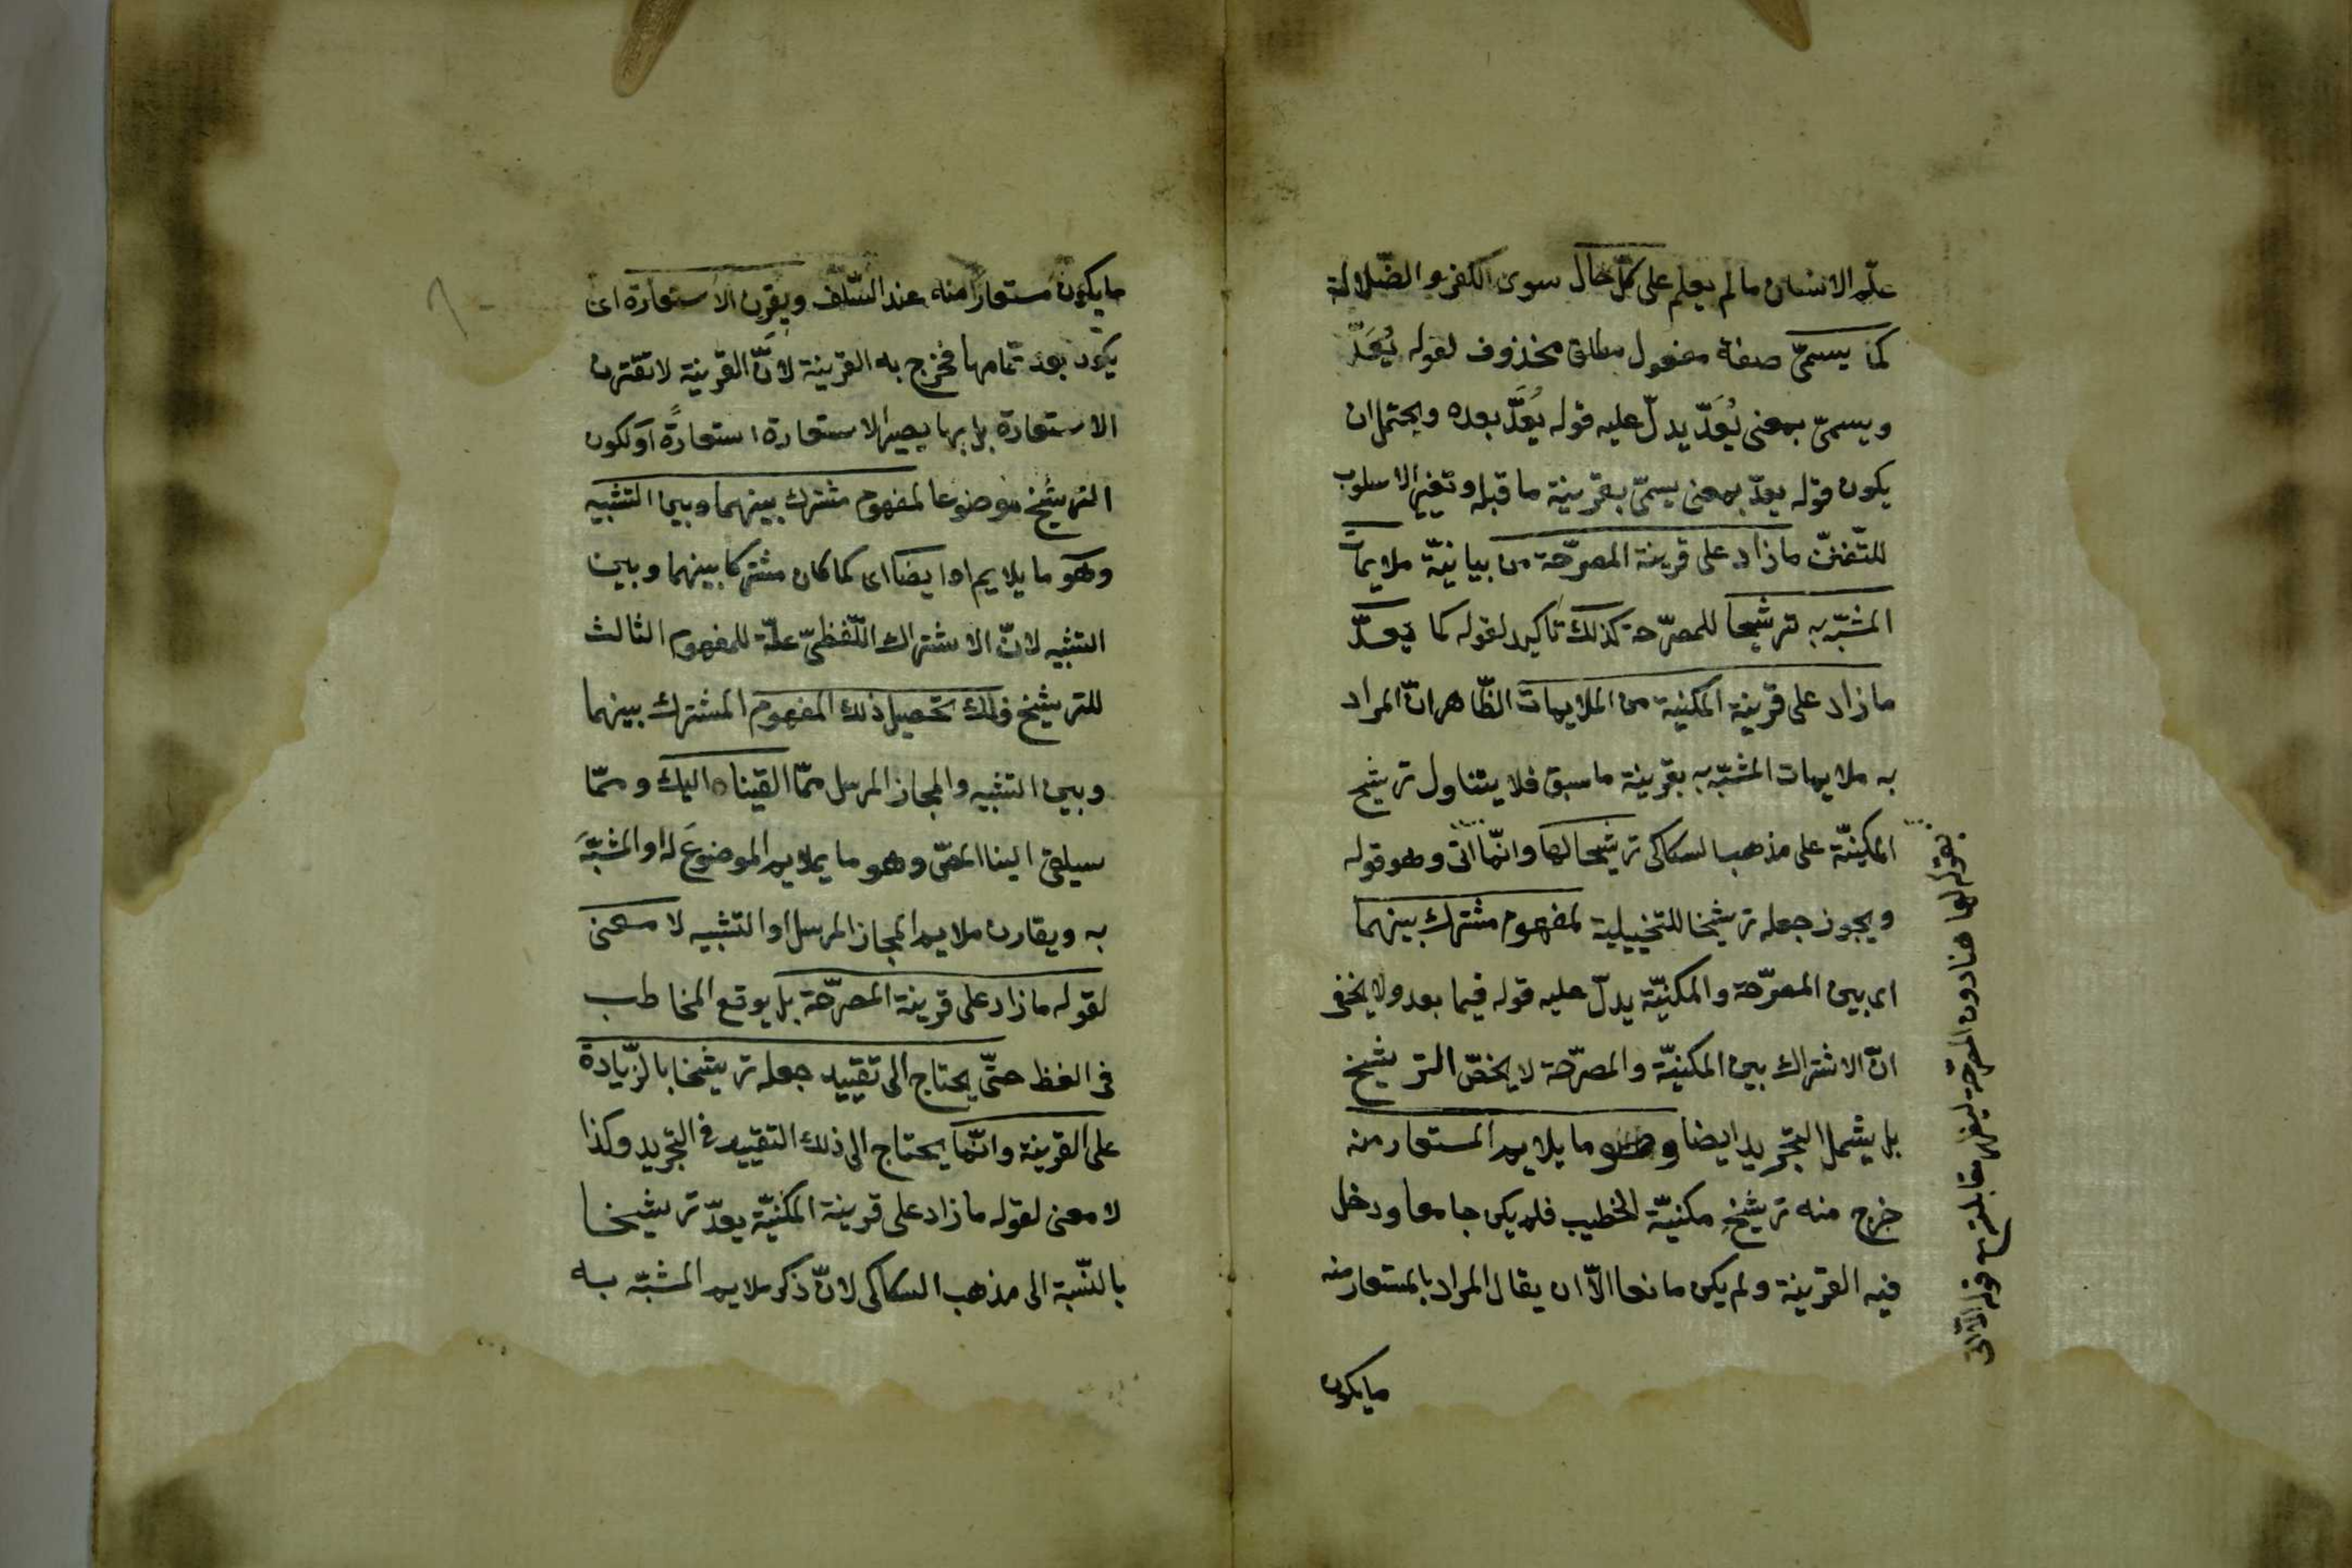 علّم الانسان مالم يعلم على كلّ حال سوى الكفر والضّلالة
كما يسمىّ صفة مفعول مطلق محذوف لقوله يُعَدّ
ويسمىّ بمعنى يُعَدّ يدلّ عليه قوله يُعَدّ بعده ويحتمل ان
يكون قوله يعدّ بمعنى يسمىّ بقرينة ما قبله وتغيير الاسلوب
للتّفننّ مازاد على قرينة المصرّحة من بيانيّة ملايمات
المشبّه به ترشيحا للمصرّحة كذلك تأكيد لقوله كما يعدّ
مازاد على قرينة المكنية من الملايمات الظّاهر انّ المراد
به ملايمات المشبّه به بقرينة ما سبق فلا يتناول ترشيح
المكنيّة على مذهب السكاكى ترشيحا لها وانّما اتى وهو قوله
ويجوز جعله ترشيخا للتخييلية لمفهوم مشترك بينهما
اى بين المصرّحة والمكنيّة يدلّ عليه قوله فيما بعد ولا يخفى
انّ الاشتراك بين المكنيّة والمصرّحة لا يخصّ الترشيخ
بل يشمل التجريد ايضا وهو ما يلايم المستعار منه
خرج منه ترشيخ مكنيّة الخطيب فلم يكن جامعا ودخل
فيه القرينة ولم يكن مانعا الاّ ان يقال المراد بالمستعار منه
مايكون
بقوله لها هنا دون المصرحة ليظهر مقابلته مع قوله الآتى
مايكون مستعارا منه عند السّلف ويقرن الاستعارة اى
يكون بعد تمامها فخرج به القرينة لانّ القرينة لا تقترن
الاستعارة بل بها يصير الاستعارة استعارةً اولكون
الترشيخ موضوعا لمفهوم مشترك بينهما وبين التشبيه
وهو ما يلايم اه ايضا اى كما كان مشتركا بينهما وبين
التشبيه لانّ الاشتراك اللّفظىّ علّة للمفهوم الثالث
للترشيخ فلك تحصيل ذلك المفهوم المشترك بينهما
وبين التشبيه والمجاز المرسل ممّا القيناه اليك وممّا
سيلقى الينا المصّ وهو ما يلايم الموضوعَ له او المشبّهَ
به ويقارن ملايم المجاز المرسل او التشبيه لا معنى
لقوله مازاد على قرينة المصرّحة بل يوقع المخاطب
فى الغط حتّى يحتاج الى تقييد جعله ترشيخا بالزّيادة
على القرينة وانّما يحتاج الى ذلك التقييد فى التجريد وكذا
لا معنى لقوله مازاد على قرينة المكنيّة يعدّ ترشيخا
بالنّسبة الى مذهب السكاكى لانّ ذكر ملايم المشبّه به